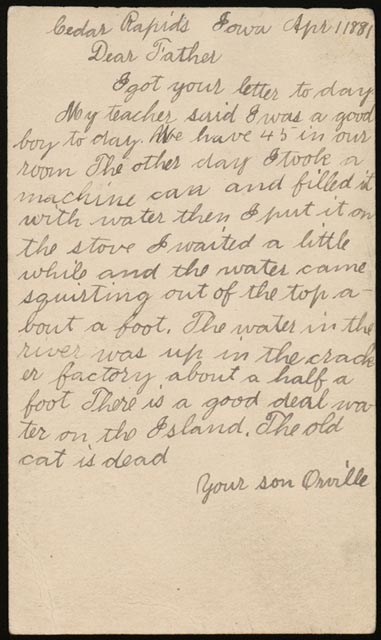 Cedar Rapids Iowa Apr 1 1881
Dear Father
I got your letter to day
My teacher said I was a good
boy to day. We have 45 in our
room The other day I took a
machine can and filled it
with water then I put it on
the stove I waited a little
while and the water came
squirting out of the top a-
bout a foot. The water in the
river was up in the crack
er factory about a half a
foot There is a good deal wa-
ter on the Island. The old
cat is dead
Your son Orville